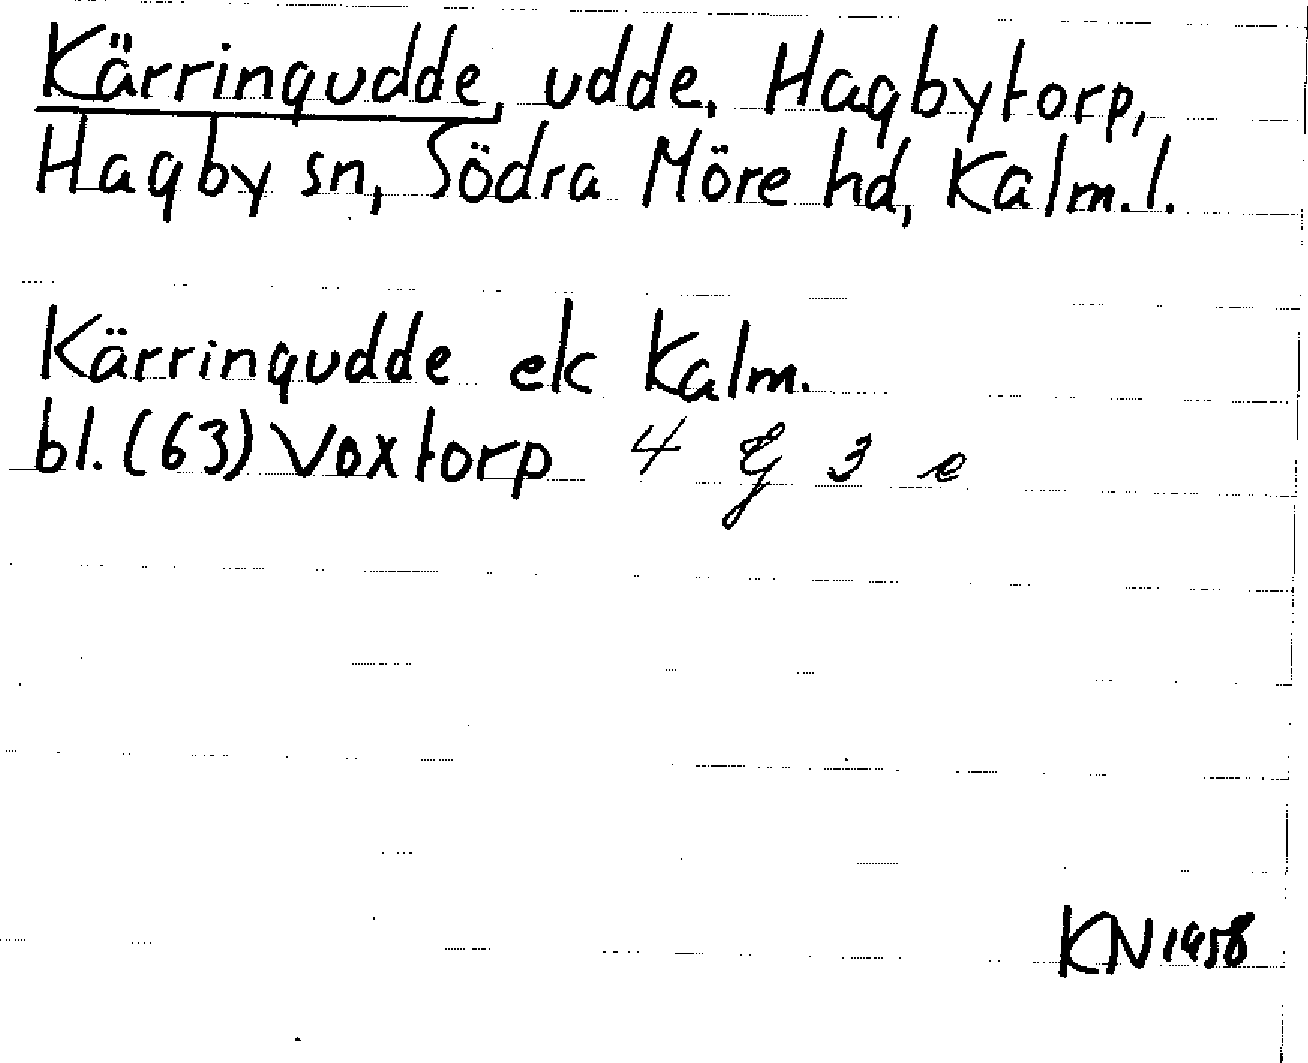 Kärringudde, udde, Hagbytorp,
Hagby sn, Södra Möre hd, Kalm.l.
Kärringudde ek Kalm.
bl. (63) Voxtorp 4 G 3 e
KN 1958